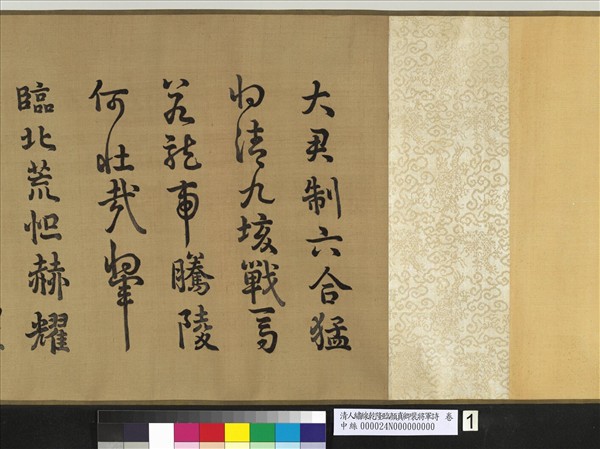 大君制六合猛
將清九垓戰馬
若龍虎騰陵
何壯哉將軍
臨北荒恒赫耀
清人乾隆臨顏真卿裴將軍詩 卷
中絲 000024N000000000
1